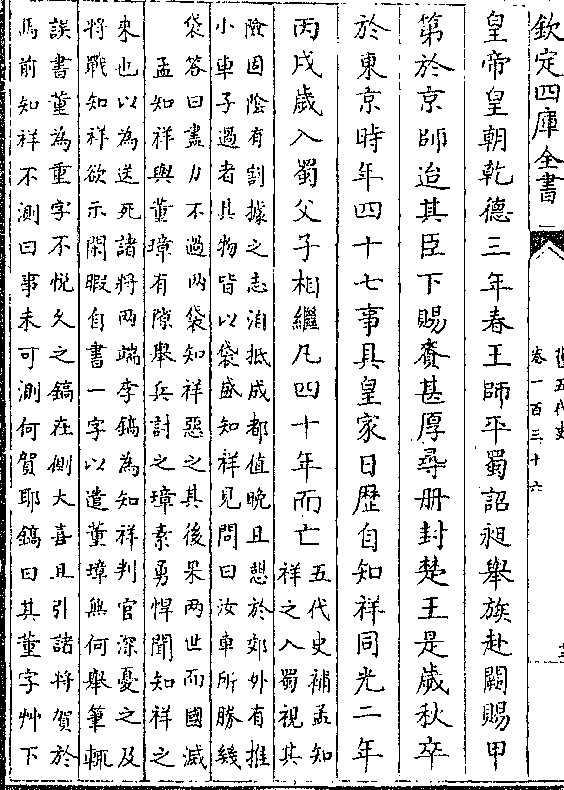 欽定四庫全書
舊五代史
卷一百三十六
皇帝皇朝乾德三年春王師平蜀詔昶舉族赴闕賜甲
第於京師迨其臣下賜賚甚厚尋册封楚王是歲秋卒
於東京時年四十七事具皇家日歷自知祥同光二年
丙戌歲入蜀父子相繼凡四十年而亡
五代史補孟知
祥之入蜀視其
險固陰有割據之志洎抵成都值晚且憩於郊外有推
小車子過者其物皆以袋盛知祥見問曰汝車所勝幾
袋答曰盡力不過兩袋知祥惡之其後果兩世而國滅
孟知祥與董璋有隙舉兵討之璋素勇悍聞知祥之
來也以為送死諸將兩端李鎬為知祥判官深憂之及
將戰知祥欲示閑暇自書一字以遣董璋無何舉筆輒
誤書董為重字不悦久之鎬在側大喜且引諸將賀於
馬前知祥不測曰事未可測何賀耶鎬曰其董字艸下